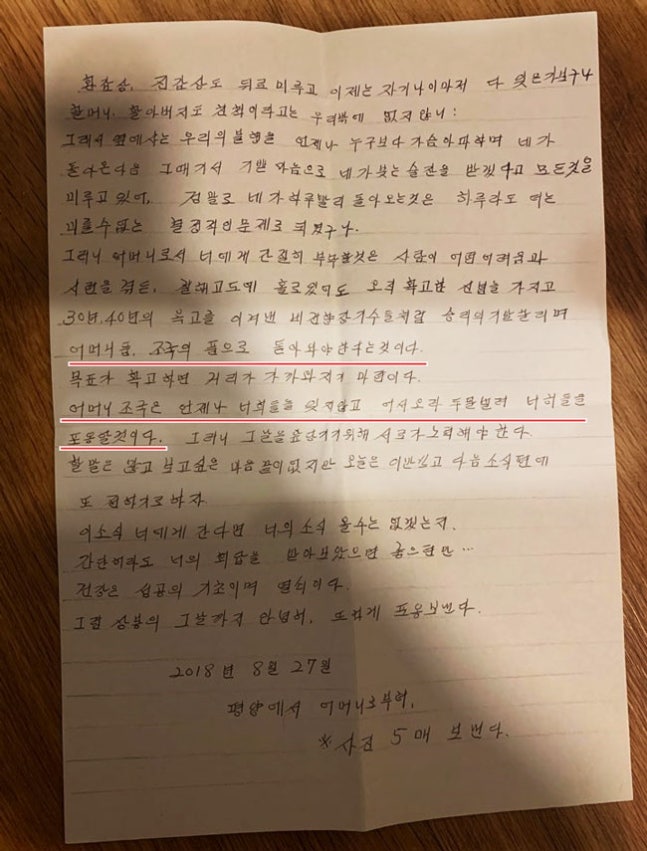 환갑상, 진갑상도 뒤로 미루고 이제는 자기 나이마저 다 잊은가보구나
할머니, 할아버지도 친척이라고는 우리밖에 없지않니:
그래서 옆에서는 우리의 불행을 언제나 누구보다 가슴아파하며 네가
돌아온다음 그때가서 기쁜 마음으로 네가 붓는 술잔을 받겠다고 모든것을
미루고 있어, 정말로 네가 하루빨리 돌아오는것은 하루라도 더는
미룰수 없는 결정적인 문제로 되였구나.
그러니 어머니로서 너에게 간절히 부탁할것은 사람이 어떤 어려움과
시련을 겪든, 절해고도에 홀로 있어도 오직 확고한 신념을 가지고
30년, 40년의 옥고를 이겨낸 비전향장기수들처럼 승리의 기발 날리며
어머니품, 조국의 품으로 돌아와야한다는것이다.
목표가 확고하면 거리가 가까와지기 마련이다.
어머니 조국은 언제나 너희들을 잊지않고 어서오라 두팔벌려 너희들을
포옹할것이다. 그러니 그날을 앞당기기위해 서로가 노력해야 한다.
할말은 많고 보고싶은 마음 끝이없지만 오늘은 이만하고 다음 소식편에
또 전하기로 하자.
이소식 너에게 간다면 너의 소식 올수는 없겠는지.
간단히라도 너의 회답을 받아보았으면 좋으련만…
건강은 성공의 기초이며 열쇠이다.
그럼 상봉의 그날까지 안녕히, 뜨겁게 포옹보낸다.
2018년 8월 27일
평양에서 어머니로부터.
※사진 5매 보낸다.